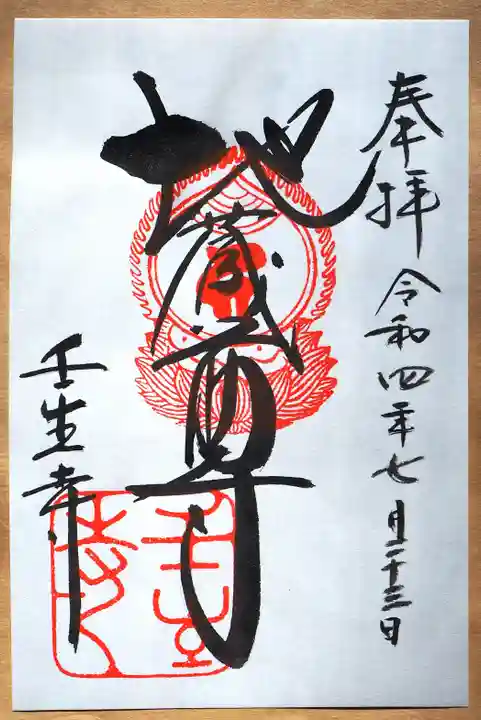 奉拝
令和四年七月二十三日
地蔵尊
壬生寺